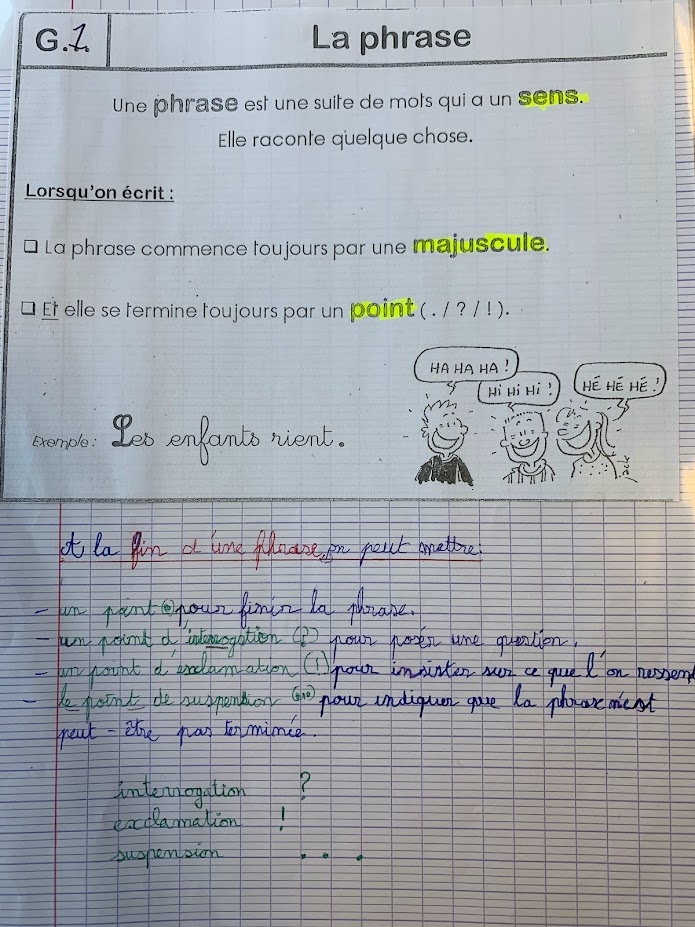 G.1.
La phrase
Une phrase est une suite de mots qui a un sens.
Elle raconte quelque chose.
Lorsqu'on écrit :
❑ La phrase commence toujours par une majuscule.
❑ Et elle se termine toujours par un point ( . / ? / ! ).
HA HA HA !
Hi Hi Hi !
HÉ HÉ HÉ !
Exemple : Les enfants rient.
A la fin d'une phrase, on peut mettre:
- un point (.) pour finir la phrase.
- un point d'interrogation (?) pour poser une question.
- un point d'exclamation (!) pour insister sur ce que l'on ressent
- le point de suspention (...) pour indiquer que la phrase n'est
peut-être pas terminée.
interrogation ?
exclamation !
suspension . . .